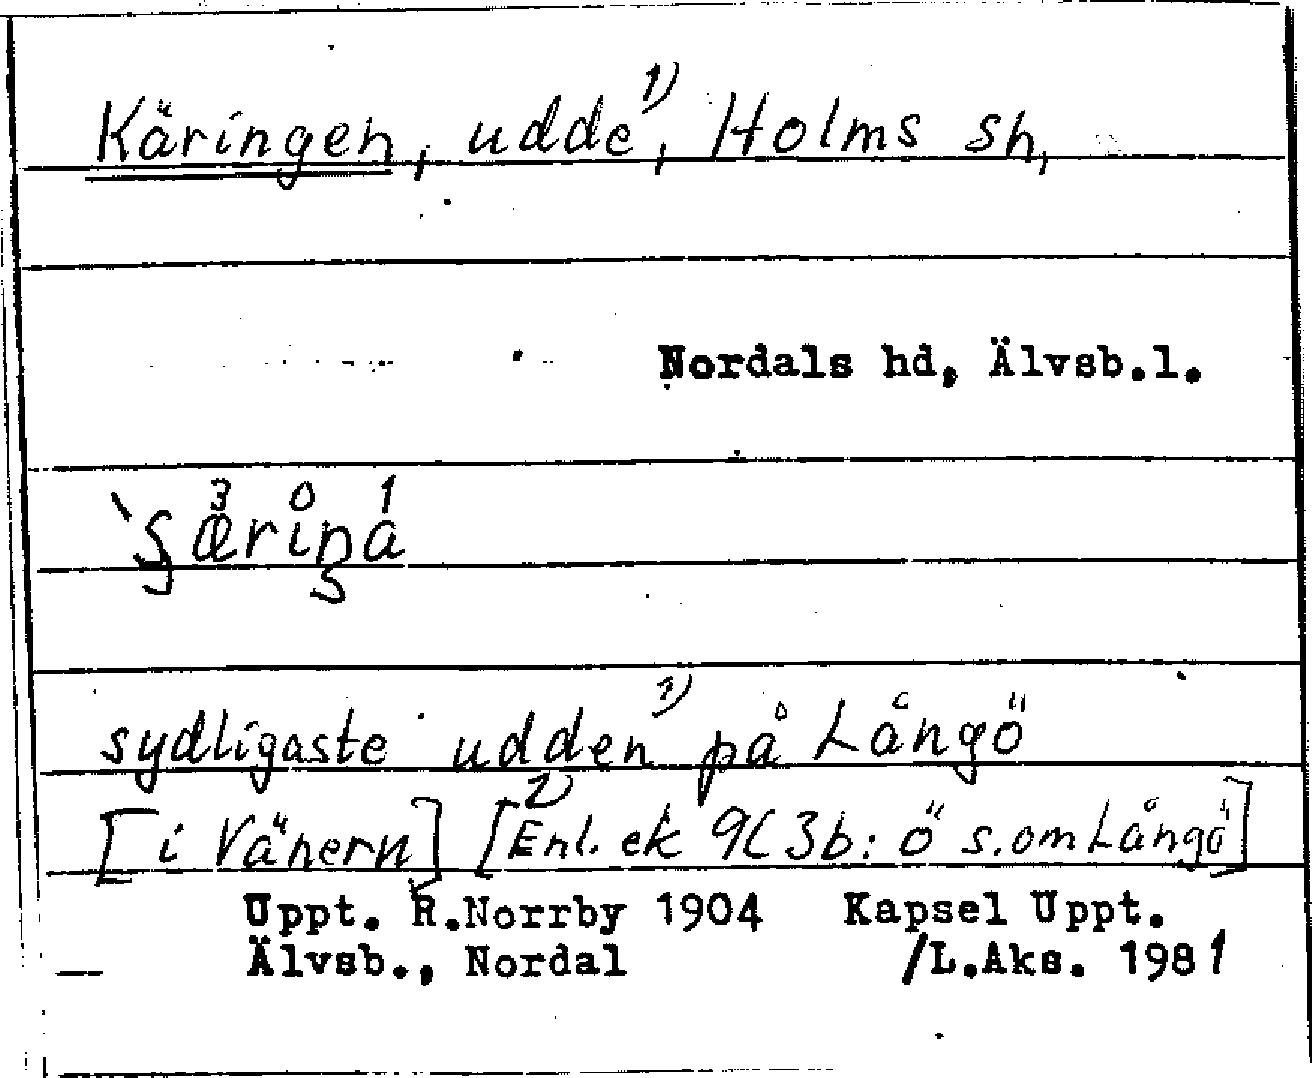 Käringen, udde¹⁾, Holms sn,
Nordals hd, Älvsb.l.
sydligaste udden¹⁾ på Långö
[i Vänern] [²⁾Enl. ek 9C3b: ö s. om Långö]
Uppt. R.Norrby 1904 Kapsel Uppt.
Älvsb., Nordal /L.Aks. 1981